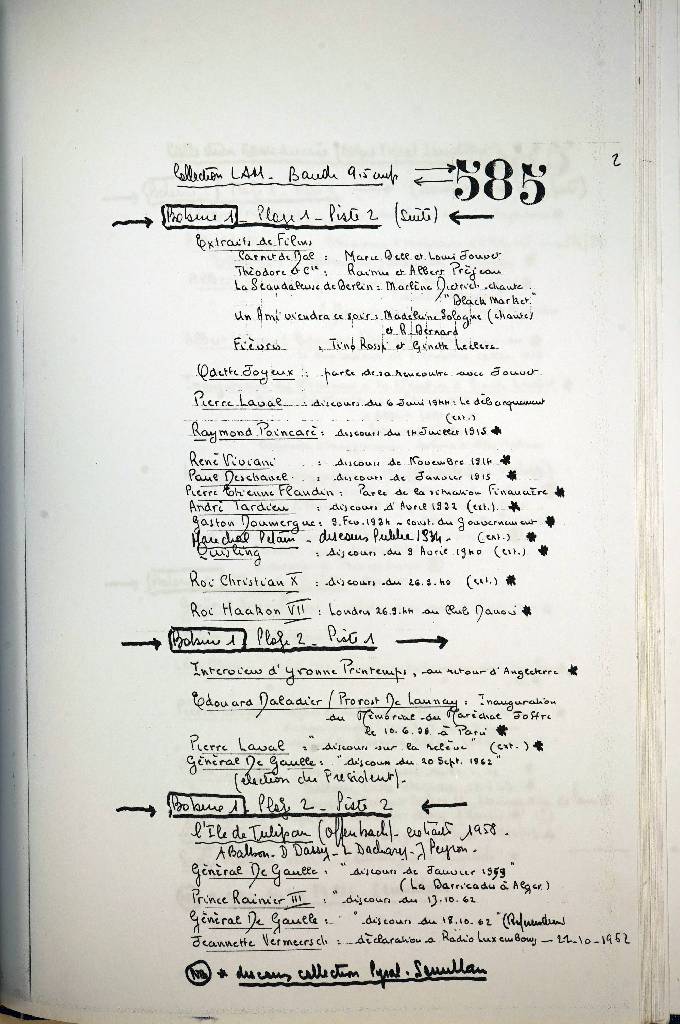 2
Collection LAM. Bande 9.5 cm/s
585
Bobine 1 - Plage 1 - Piste 2 (suite)
Extraits de Films
Carnet de Bal : Marie Bell et Louis Jouvet
Théodore et Cie : Raimu et Albert Préjean
La Scandaleuse de Berlin : Marlène Dietrich chante
"Black Market"
Un Ami viendra ce soir : Madeleine Sologne (chante)
et R. Bernard
Fièvres : Tino Rossi et Ginette Leclerc
Odette Joyeux : parle de sa rencontre avec Jouvet
Pierre Laval : discours du 6 Juin 1944 : Le débarquement
(ext.)
Raymond Poincaré : discours du 14 Juillet 1915 *
René Viviani : discours de Novembre 1914 *
Paul Deschanel : discours de Janvier 1915 *
Pierre Etienne Flandin : Parle de la situation Financière *
André Tardieu : discours d'Avril 1932 (ext.) *
Gaston Doumergue : 9. Fev. 1934 - const. du Gouvernement *
Maréchal Pétain - discours Public 1934 - (ext.) *
Quisling : discours du 9 Avril 1940 (ext.) *
Roi Christian X : discours du 26.9.40 (ext.) *
Roi Haakon VII : Londres 26.9.44 au Club Danois *
Bobine 1 Plage 2 - Piste 1
Interview d'Yvonne Printemps, au retour d'Angleterre *
Edouard Daladier / Provost De Launay : Inauguration
du Mémorial du Maréchal Joffre
le 10.6.39 à Paris *
Pierre Laval : "discours sur la relève" (ext.) *
Général De Gaulle : "discours du 20 Sept. 1962"
(élection du Président).
Bobine 1 Plage 2 - Piste 2
l'Ile de Tulipan (Offenbach) - extraits 1958.
A Balbon - D Dassy - L Dachary - J Peyron.
Général De Gaulle : "discours de Janvier 1959"
(La Barricade à Alger)
Prince Rainier III : "discours du 13.10.62
Général De Gaulle : "discours du 18.10.62" (Référendum)
Jeannette Vermeersch : déclaration à Radio Luxembourg - 22-10-1962
NB * discours collection Pyral.